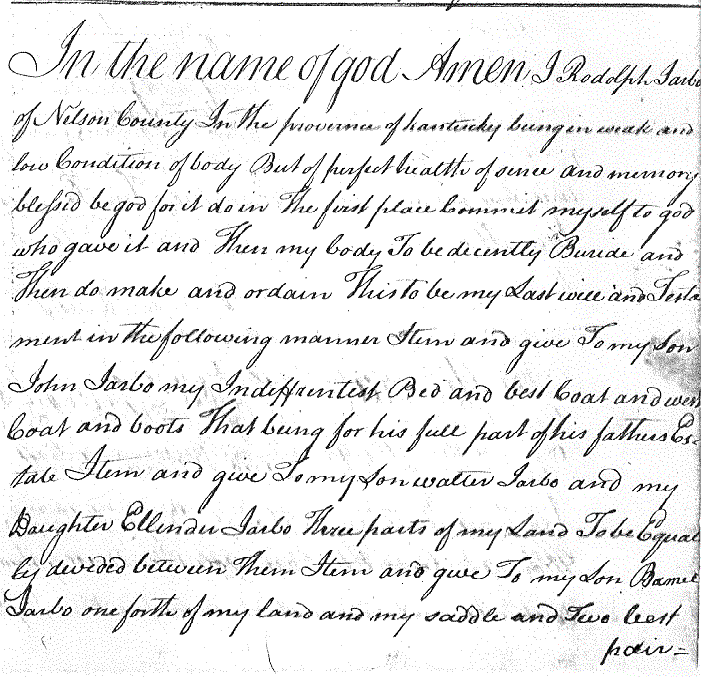 In the name of god Amen I Rodolph Jarbo
of Nelson County In the provence of kantucky being in weak and
low Condition of body But of perfect health of sence and memory
blessed be god for it do in The first place Commit myself to god
who gave it and Then my body To be decently Buride and
Then do make and ordain This to be my Last will and Testa
ment in the following manner Item and give To my Son
John Jarbo my Indiffrentest Bed and best Coat and west
Coat and boots That being for his full part of his fathers Es=
tate Item and give To my Son walter Jarbo and my
Daughter Ellender Jarbo Three parts of my Land To be Equal
ly divided between Them Item and give To my Son
Jarbo one forth of my land and my saddle and Two best
pair=